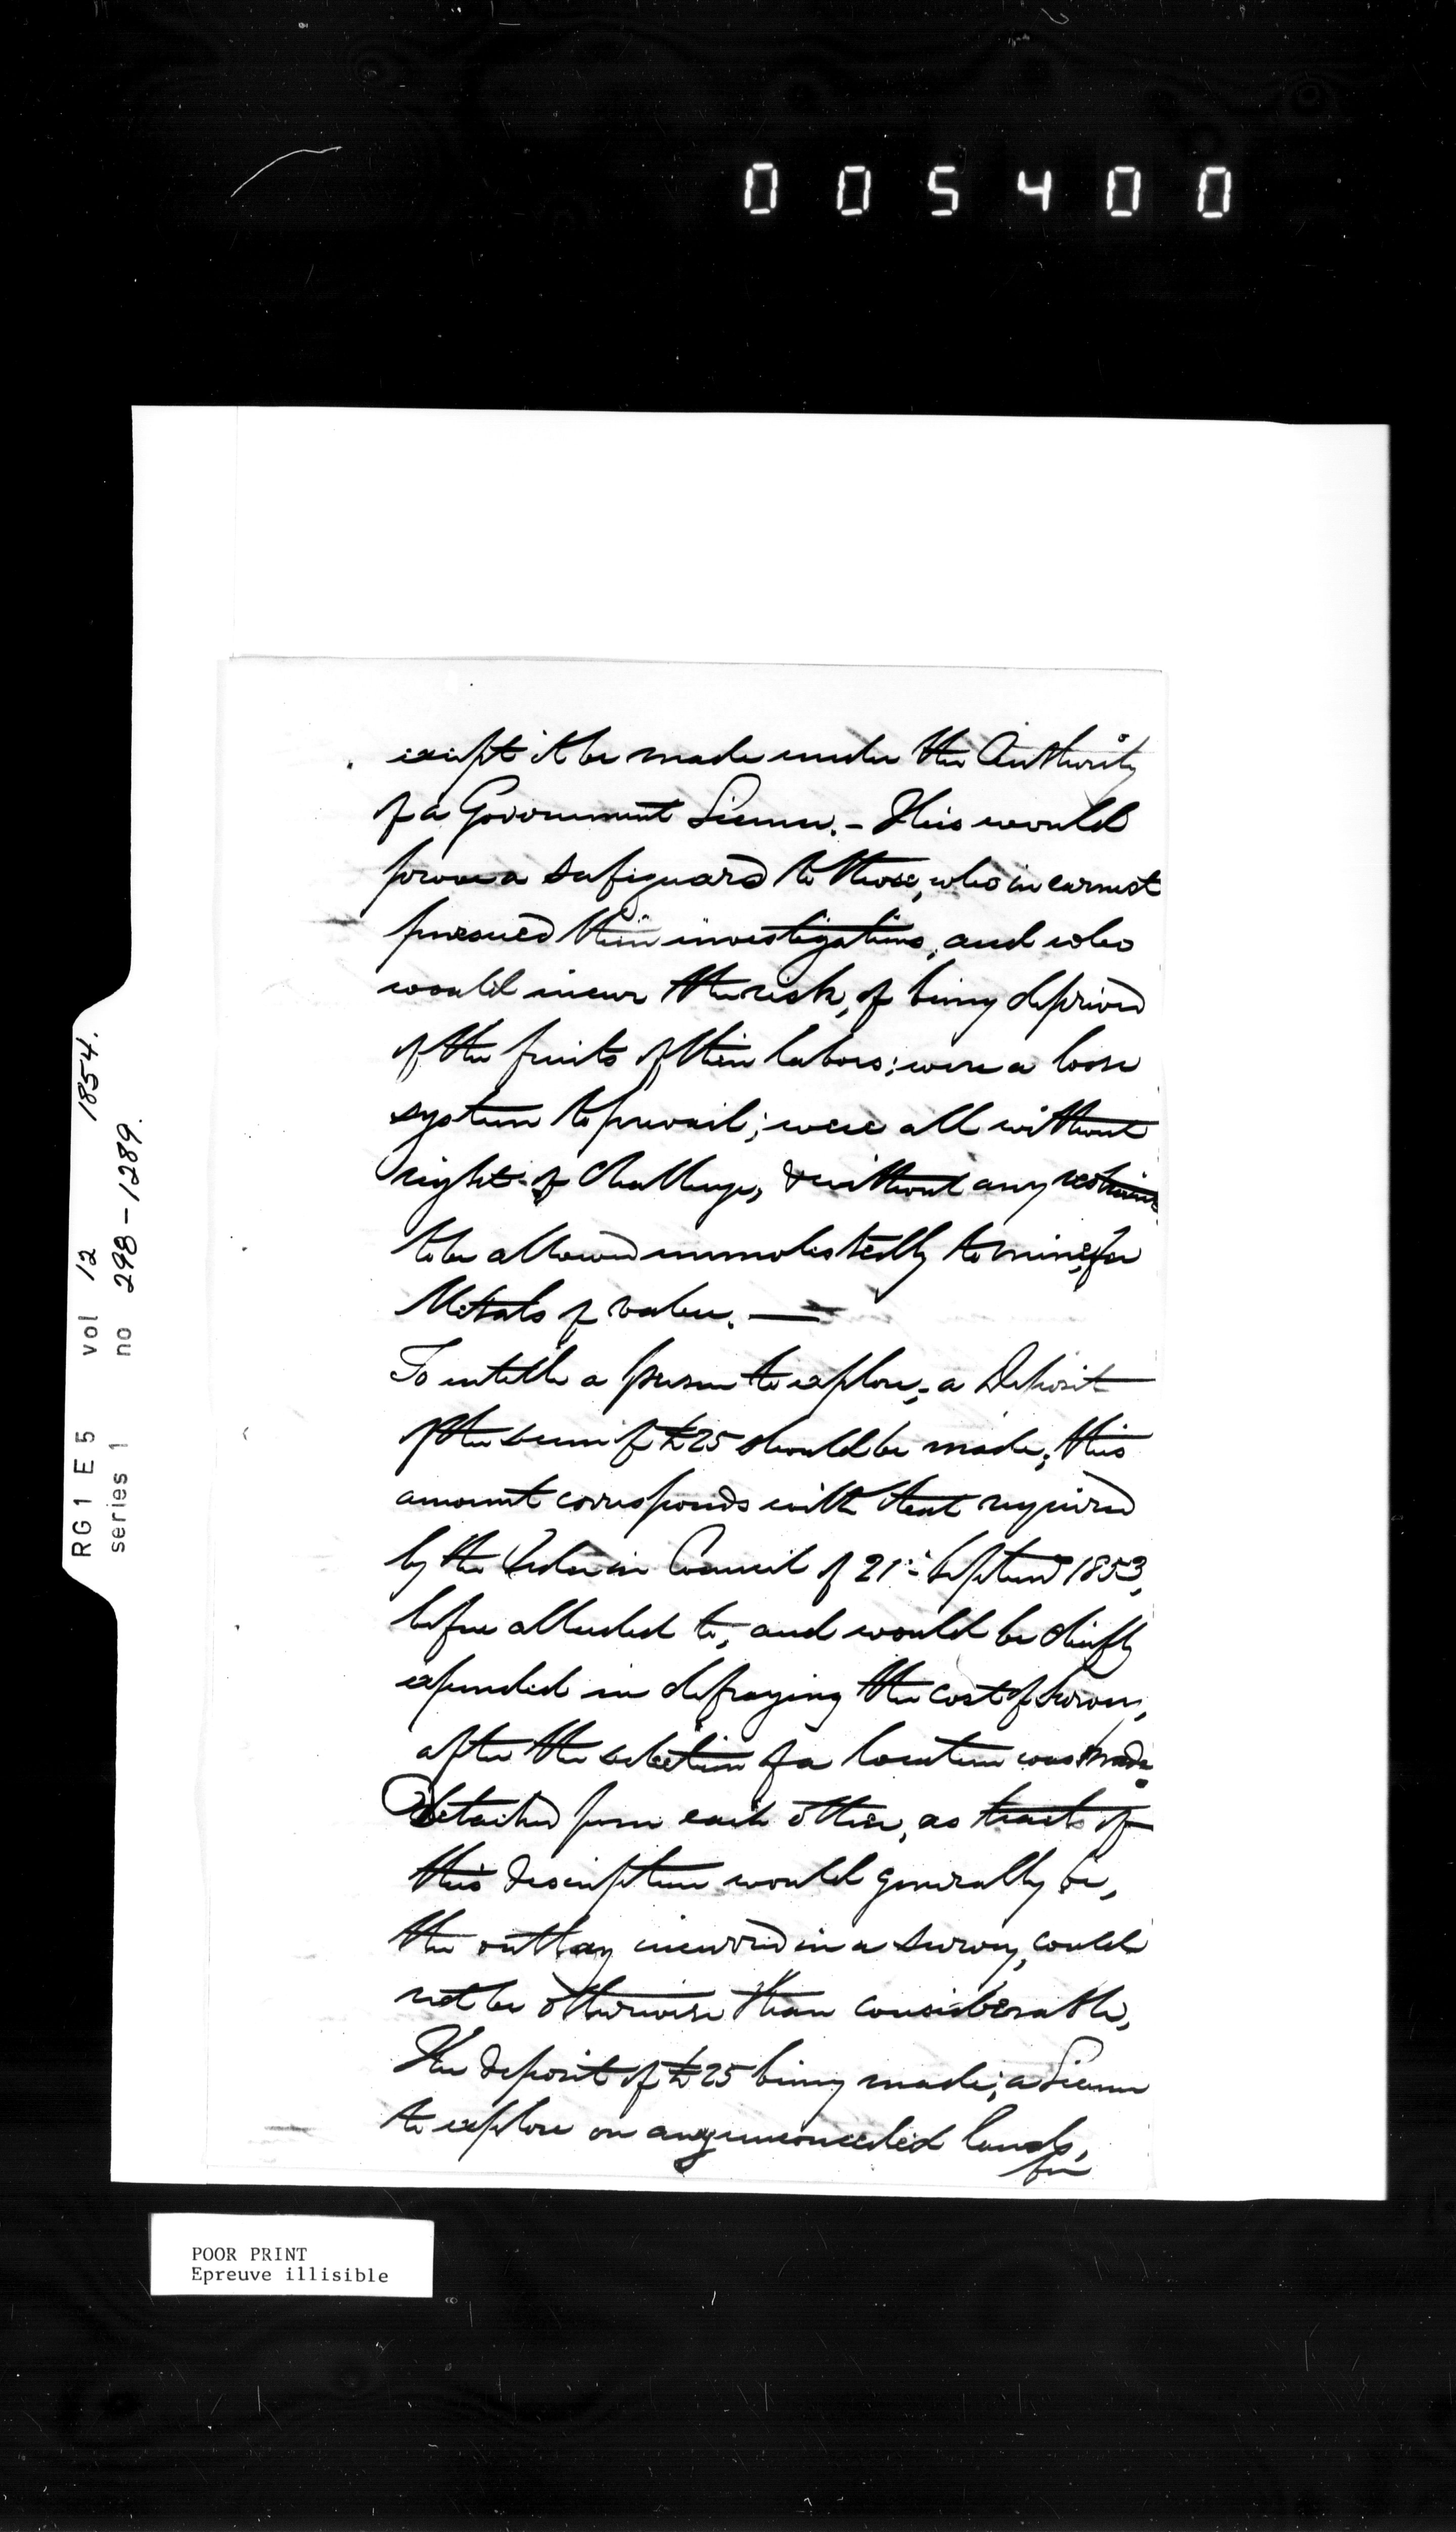 005400
RG1 E5 vol 12 1854.
series 1 no 298-1289.
except it be made under the Authority
of a Government License. - This would
prove a safeguard to those, who in earnest
pursued their investigations, and who
would incur the risk, of being deprived
of the fruits of their labors; were a loose
system to prevail; were all without
right of Challenge, & without any restraint
to be allowed unmolestedly to mine, for
Metals of value. —
To entitle a person to explore, a Deposit
of the sum of £25 should be made; this
amount corresponds with that required
by the Order in Council of 21st Septemr 1853,
before alluded to, and would be chiefly
expended in defraying the cost of Survey,
after the selection of a location was made.
Detached from each other, as tracts of
this description would generally be,
the outlay incurred in a survey, could
not be otherwise than considerable,
The deposit of £25 being made; a License
to explore on any unconceded lands,
for
POOR PRINT
Epreuve illisible